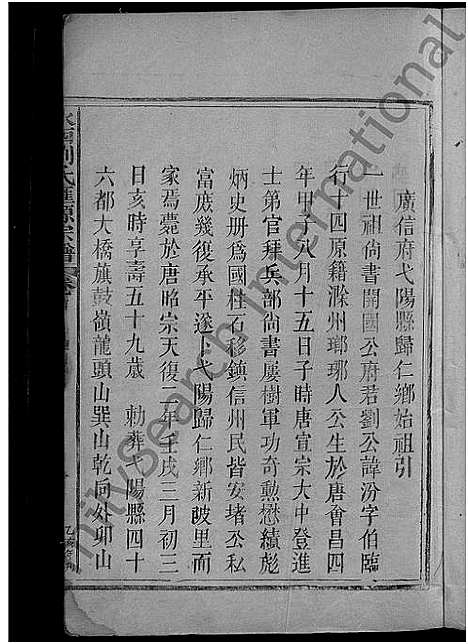 廣信府弋陽縣歸仁鄉始祖引
一世祖尙書開國公府君劉公諱汾字伯臨
行十四原籍滁州瑯琊人公生於唐會昌四
年甲子八月十五日子時唐宣宗大中登進
士第官拜兵部尙書屢樹軍功奇勲懋績彪
炳史册爲國柱石移鎮信州民皆安堵公私
富庶幾復承平遂卜弋陽歸仁鄉新陂里而
家焉薨於唐昭宗天復二年壬戌三月初三
日亥時享壽五十九歲 勅葬弋陽縣四十
六都大橋旗鼓嶺龍頭山巽山乾向处卯山
劉氏重源宗譜
FamilySearch International